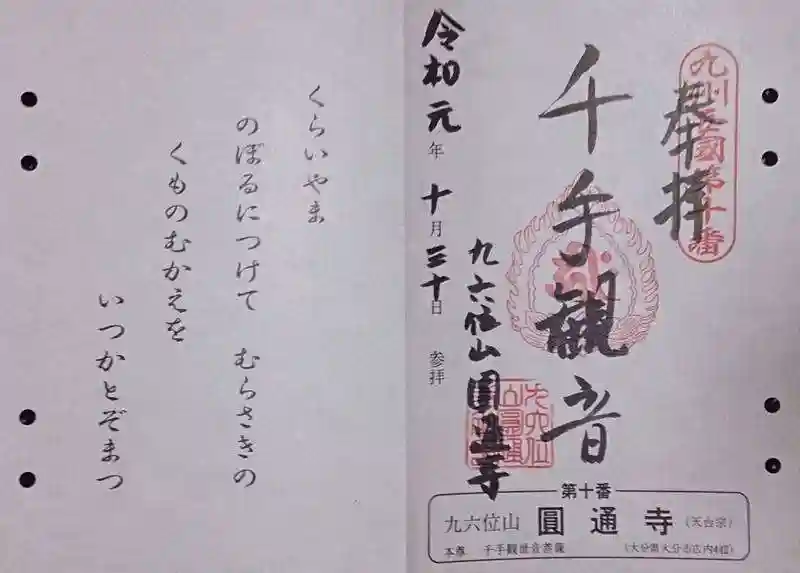 九州西國第十番
奉拝
千手觀音
九六位山 圓通寺
令和元年 十月三十日 参拝
第十番
九六位山 圓通寺 (天台宗)
本尊 千手観世音菩薩 (大分県大分市広内4組)
くらいやま
のぼるにつけて むらさきの
くものむかえを
いつかとぞまつ